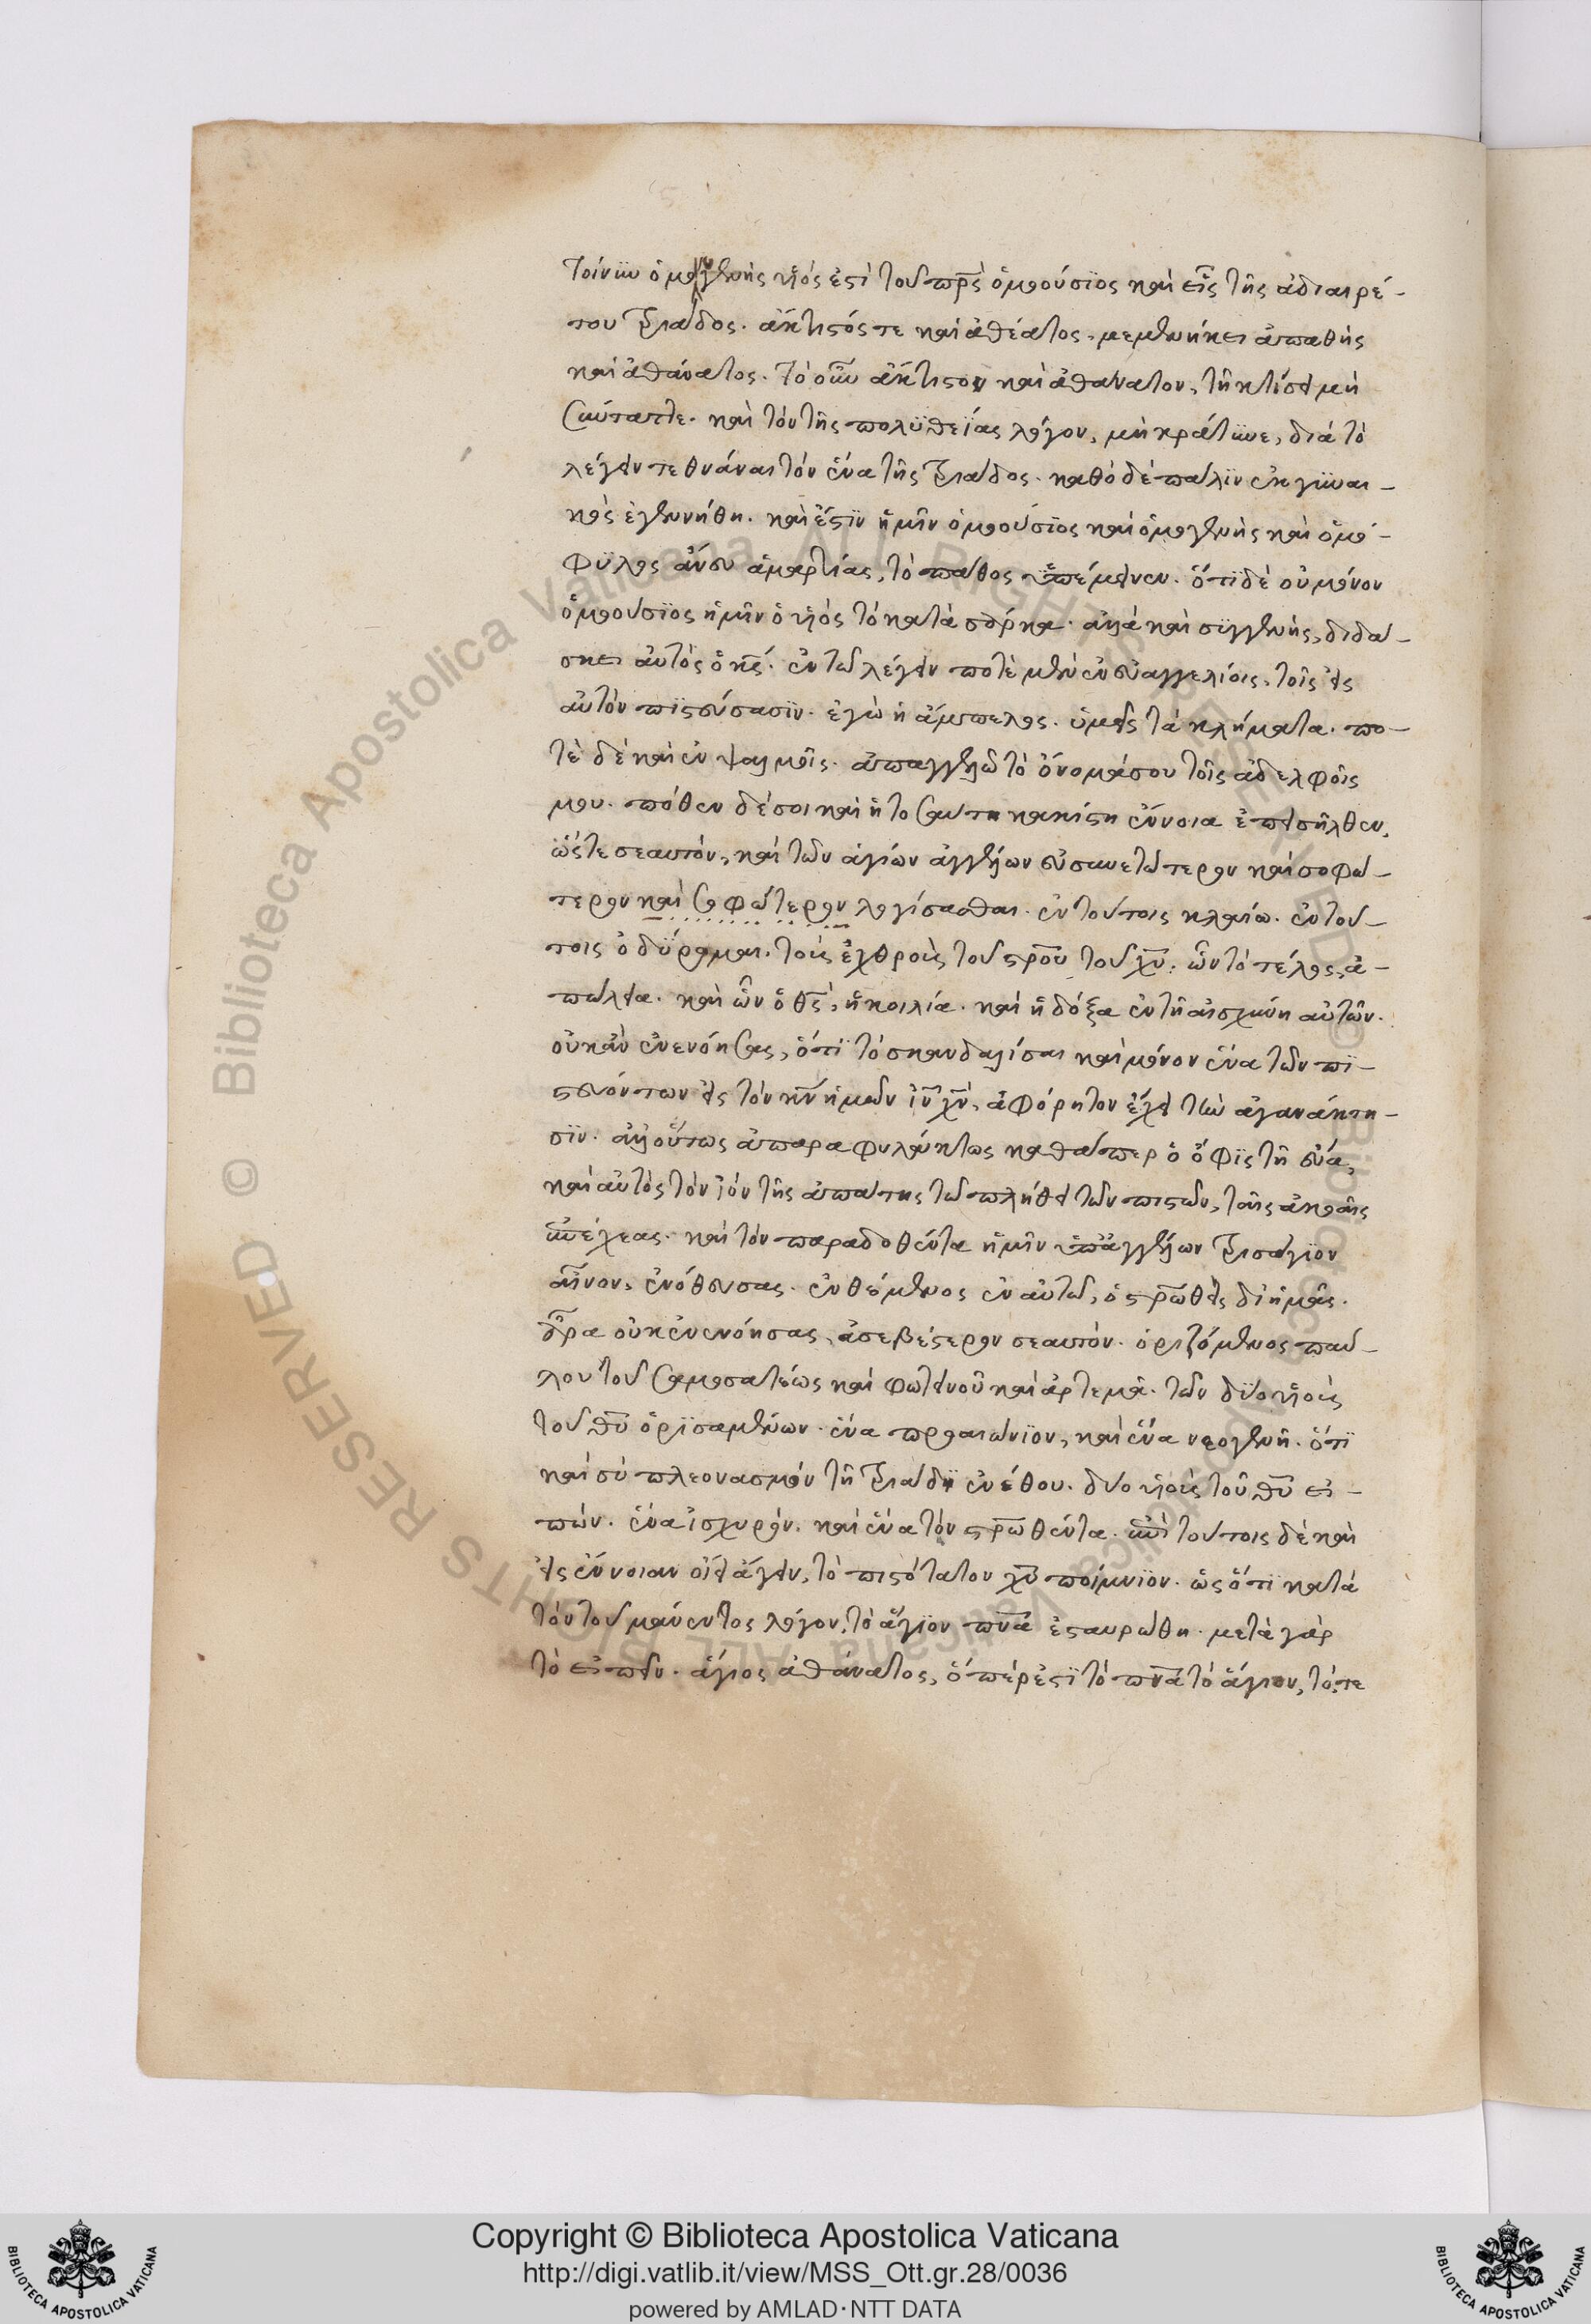 τοίνυν ὁ μονογενὴς υἱός ἐστὶ τοῦ πρς ὁμοούσϊος καὶ εἷς τῆς ἀδιαιρέ-
του τριάδος. ἄκτιστός τε καὶ ἀθέατος. μεμενήκει ἀπαθὴς
καὶ ἀθάνατος. τὸ οὖν ἄκτιστον καὶ ἀθάνατον, τῇ κτίσει μὴ
σύναπτε. καὶ τὸν τῆς πολϋθεΐας λόγον, μὴ κράτυνε, διὰ τὸ
λέγειν τεθνάναι τὸν ἕνα τῆς τριάδος. καθὸ δὲ πάλϊν ἐκ γυναι-
κὸς ἐγεννήθη. καὶ ἔστϊν ἡμῖν ὁμοούσϊος καὶ ὁμογενὴς καὶ ὁμό-
φϋλος ἄνευ ἁμαρτίας, τὸ πάθος ὑπέμεινεν. ὅτϊ δὲ οὐ μόνον
ὁμοούσϊος ἡμῖν ὁ υἱὸς τὸ κατὰ σάρκα. ἀλλὰ καὶ σϋγγενὴς, διδά-
σκει αὐτὸς ὁ κς. ἐν τῶ λέγειν ποτὲ μὲν ἐν εὐαγγελίοις, τοῖς εἰς
αὐτὸν πϊστεύσασϊν. ἐγὼ ἡ ἄμπελος. ὑμεῖς τὰ κλήματα. πο-
τὲ δὲ καὶ ἐν ψαλμοῖς. ἀπαγγελῶ τὸ ὄνομά σου τοῖς ἀδελφοῖς
μου. πόθεν δέ σοι καὶ ἡ τοσαύτη κακίστη ἔννοια ἐπεισῆλθεν,
ὥστε σεαυτὸν, καὶ τῶν ἁγίων ἀγγέλων εὐσυνετώτερον καὶ σοφώ-
τερον καὶ σοφώτερον λογίσασθαι. ἐν τούτοις κλαίω. ἐν τού-
τοις ὀδϋρομαι. τοὺς ἐχθροὺς τοῦ στρου τοῦ χυ. ὧν τὸ τέλος, ἀ-
πώλεια. καὶ ὧν ὁ θς, ἡ κοιλία. καὶ ἡ δόξα ἐν τῇ αἰσχύνη αὐτῶν.
οὐκ ἂν ἐνενόησας, ὅτϊ τὸ σκανδαλίσαι καὶ μόνον ἕνα τῶν πϊ-
στευόντων εἰς τὸν κν ἡμῶν ιν χν, ἀφόρητον ἔχει τὴν ἀγανάκτη-
σϊν. ἀλλ' οὕτως ἀπαραφυλάκτως καθάπερ ὁ ὄφϊς τῇ εὔα,
καὶ αὐτὸς τὸν ἰὸν τῆς ἀπάτης τῶ πλήθει τῶν πιστῶν, ταῖς ἀκοαῖς
ἐπέχεας. καὶ τὸν παραδοθέντα ἡμῖν ὑπ' ἀγγέλων τρισάγϊον
αἶνον, ἐνόθευσας. ἐνθέμενος ἐν αὐτῶ, ὁ στρωθεὶς δι' ἡμᾶς.
ἆρα οὐκ ἐνενόησας, ἀσεβέστερον σεαυτὸν. ὁριζόμενος παύ-
λου τοῦ σαμοσατέως καὶ φωτεινοῦ καὶ ἀρτεμᾶ. τῶν δϋο υἱοὺς
τοῦ θυ ὁρϊσαμένων. ἕνα προαιωνϊον, καὶ ἕνα νεογενῆ. ὅτϊ
καὶ σὺ πλεονασμὸν τῇ τριάδϊ ἐνέθου. δύο υἱοὺς τοῦ θυ εἰ-
πών. ἕνα ἰσχυρὸν. καὶ ἕνα τὸν στρωθέντα. ἐπὶ τούτοις δὲ καὶ
εἰς ἔννοιαν οἴει ἄγειν, τὸ πιστότατον χυ ποίμνϊον. ὡς ὅτϊ κατὰ
τὸν τοῦ μάνεντος λόγον, τὸ ἅγϊον πνα ἐσταυρώθη. μετὰ γὰρ
τὸ εἰπεῖν. ἅγιος ἀθάνατος, ὅπέρ ἐστϊ τὸ πνα τὸ ἅγιον, τό,τε
Copyright © Biblioteca Apostolica Vaticana
http://digi.vatlib.it/view/MSS_Ott.gr.28/0036
powered by AMLAD·NTT DATA